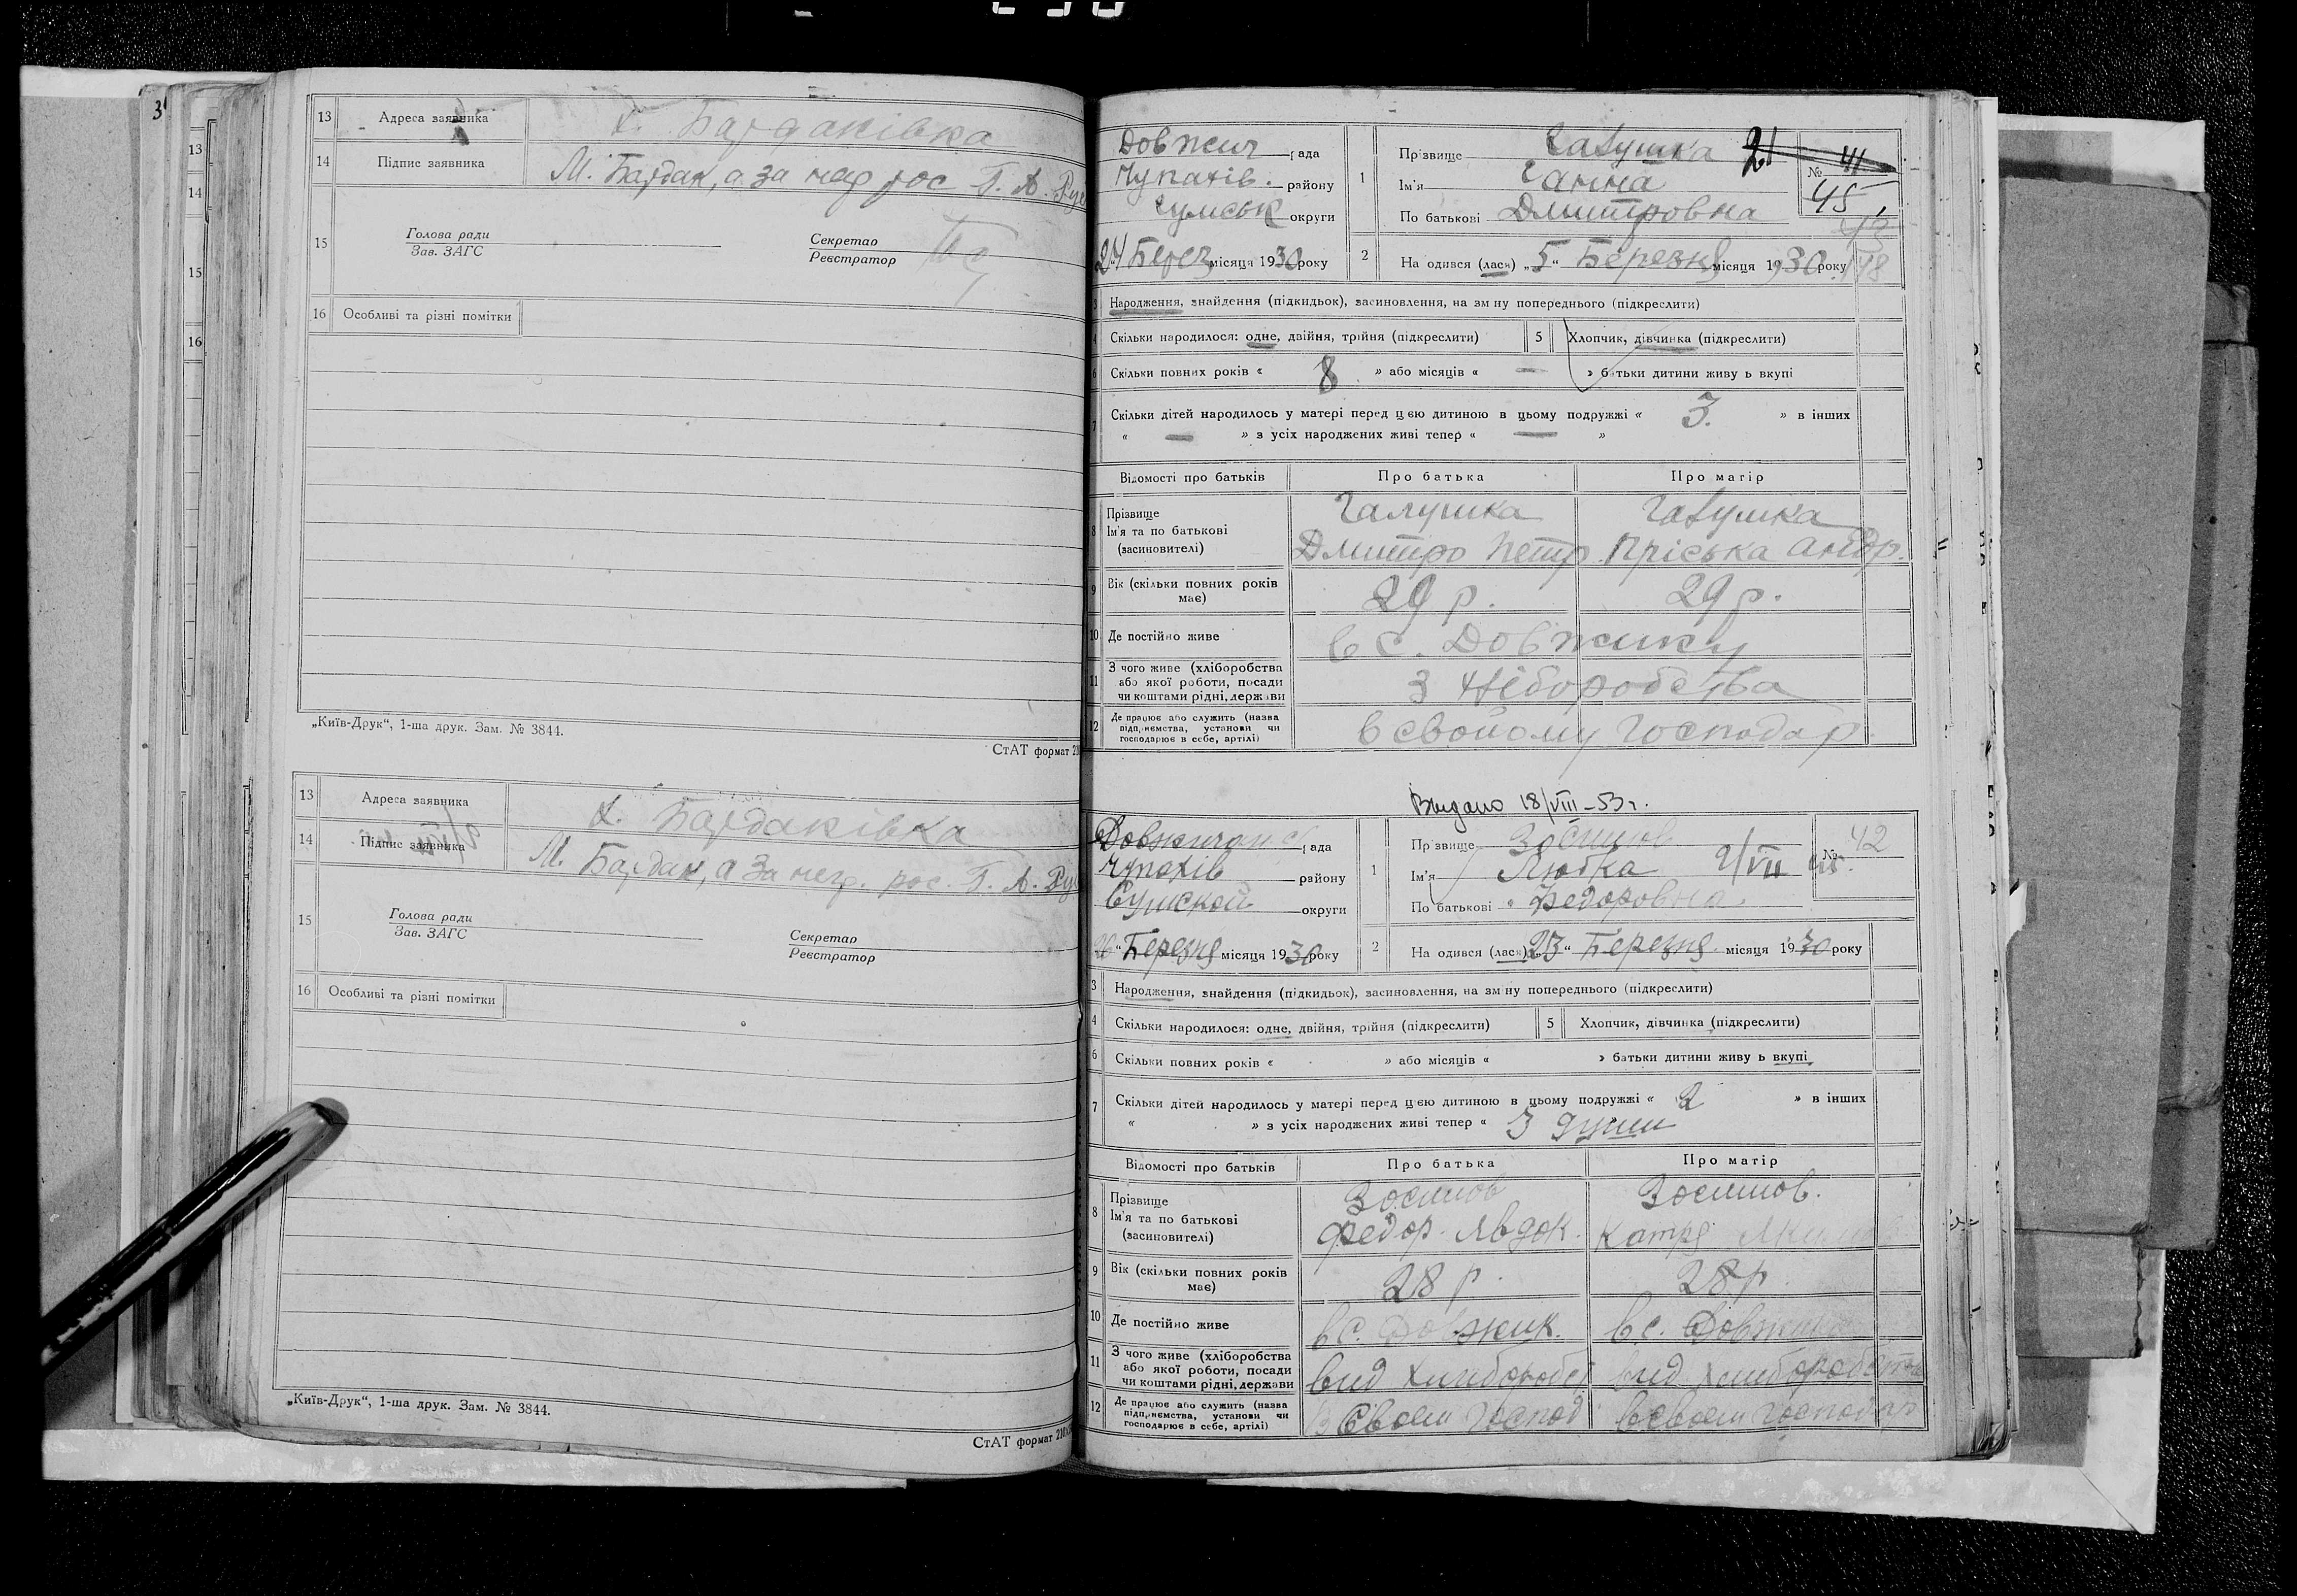 3
13
14
15
16
13 Адреса заявника х. Бардаківка
14 Підпис заявника М. Бардак, а за негр рос Г. А. Рус
15 Голова ради
Зав. ЗАГС
Секретар
Реєстратор
16 Особливі та різні помітки
„Київ-Друк“, 1-ша друк. Зам. № 3844.
СтАТ формат 210
13 Адреса заявника х. Бардаківка
14 Підпис заявника М. Бардак, а за негр. рос. Г. А. Рус
15 Голова ради
Зав. ЗАГС
Секретар
Реєстратор
16 Особливі та різні помітки
„Київ-Друк“, 1-ша друк. Зам. № 3844.
СтАТ формат 210
Довжич рада
Чупахів. району
Сумськ округи
24 Берез місяця 1930 року
1 Прізвище Галушка 21
Ім'я Ганна
По батькові Дмитровна
№ 41
45
2 Народився (лася) „5“ Березня місяця 1930 року
3 Народження, знайдення (підкидьок), засиновлення, на зміну попереднього (підкреслити)
4 Скільки народилося: одне, двійня, трійня (підкреслити) 5 Хлопчик, дівчинка (підкреслити)
6 Скільки повних років « 8 » або місяців « — » батьки дитини живуть вкупі
7 Скільки дітей народилось у матері перед цією дитиною в цьому подружжі « 3. » в інших
« — » з усіх народжених живі тепер « — »
Відомості про батьків Про батька Про матір
8 Прізвище Галушка Галушка
Ім'я та по батькові
(засиновителі) Дмитро Петр. Пріська Андр.
9 Вік (скільки повних років має) 29 р. 29 р.
10 Де постійно живе в с. Довжику
11 З чого живе (хліборобства
або якої роботи, посади
чи коштами рідні, держави З хліборобства
12 Де працює або служить (назва
підприємства, установи чи
господарює в себе, артілі) в свойому господар
Выдано 18/VIII-53 г.
Довжичан рада
Чупахів району
Сумской округи
26 “ Березня місяця 1930 року
1 Прізвище Зосимов
Ім'я Любка 2/VII
По батькові Федоровна
№ 42
2 Народився (лася) „23“ Березня місяця 1930 року
3 Народження, знайдення (підкидьок), засиновлення, на зміну попереднього (підкреслити)
4 Скільки народилося: одне, двійня, трійня (підкреслити) 5 Хлопчик, дівчинка (підкреслити)
6 Скільки повних років « » або місяців « » батьки дитини живуть вкупі
7 Скільки дітей народилось у матері перед цією дитиною в цьому подружжі « 2 » в інших
« » з усіх народжених живі тепер « 3 души
Відомості про батьків Про батька Про матір
8 Прізвище Зосимов Зосимов.
Ім'я та по батькові
(засиновителі) Федор. Явдок. Катря Яким
9 Вік (скільки повних років має) 28 р. 28 р.
10 Де постійно живе в с. Довжик. в с. Довжик
11 З чого живе (хліборобства
або якої роботи, посади
чи коштами рідні, держави вид хлиборобст вид хлиборобства
12 Де працює або служить (назва
підприємства, установи чи
господарює в себе, артілі) в своем господ в своем господар